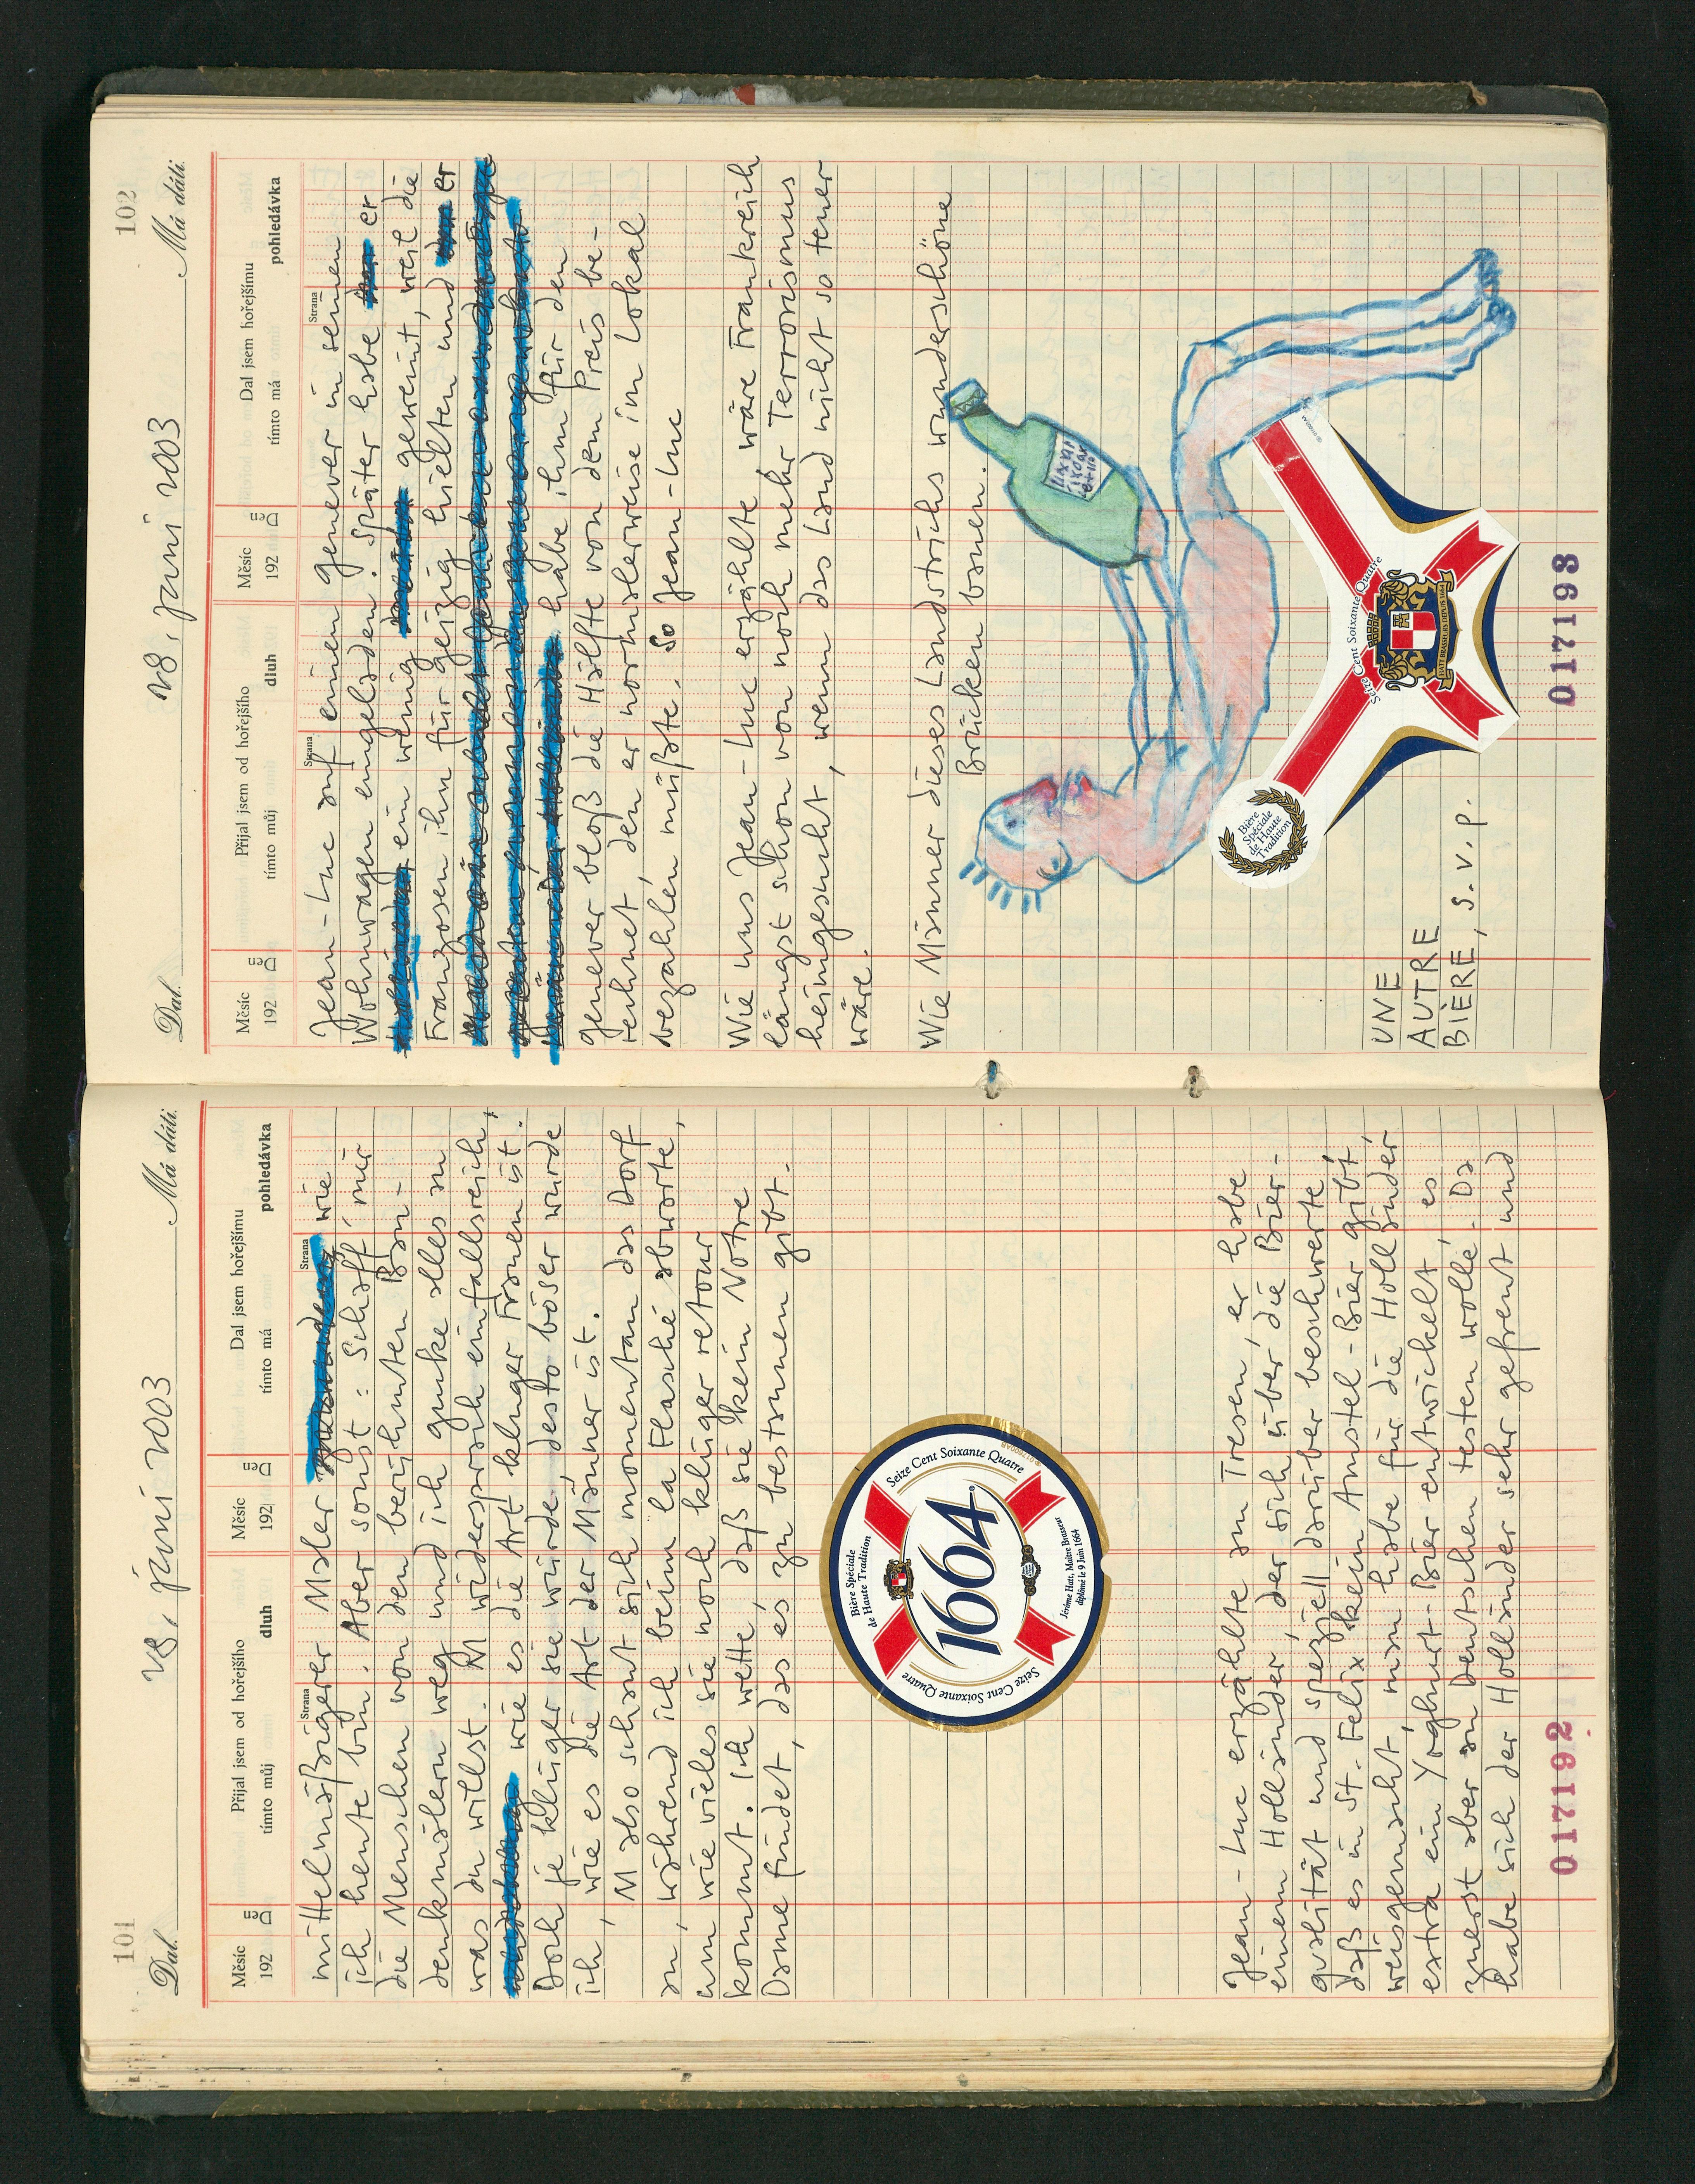 101
28. juni 2003
Dal.
Má dáti.
Měsíc
192
Den
Přijal jsem od hořejšího
tímto můj
dluh
Měsíc
192
Den
Dal jsem hořejšímu
tímto má
pohledávka
Strana
Strana
mittelmäßiger Maler wie
ich heute bin. Aber sonst: Schaff' mir
die Menschen von den berühmten Bau-
denkmälern weg und ich gucke alles an
was du willst. M widersprach einfallsreich,
wie es die Art kluger Frauen ist.
Doch je klüger sie wurde desto böser wurde
ich, wie es die Art der Männer ist.
M also schaut sich momentan das Dorf
an, während ich beim la Flasche abwarte,
um wie vieles sie noch klüger retour
kommt. Ich wette, daß sie kein Notre
Dame findet, das es zu bestaunen gibt.
Bière Spéciale
de Haute Tradition
Seize Cent Soixante Quatre
1664
Seize Cent Soixante Quatre
Jérôme Hatt, Maître Brasseur
diplômé le 9 Juin 1664
Jean-Luc erzählte am Tresen, er habe
einem Holländer, der sich über die Bier-
qualität und speziell darüber beschwerte
daß es in St. Felix kein Amstel-Bier gibt,
weisgemacht, man habe für die Holländer
extra ein Yoghurt-Bier entwickelt, es
zuerst aber an Deutschen testen wolle. Da
habe sich der Holländer sehr gefreut und
017192
102
28. juni 2003
Dal.
Má dáti.
Měsíc
192
Den
Přijal jsem od hořejšího
tímto můj
dluh
Měsíc
192
Den
Dal jsem hořejšímu
tímto má
pohledávka
Strana
Strana
Jean-Luc auf einen Genever in seinen
Wohnwagen eingeladen. Später habe er
ein wenig geweint, weil die
Franzosen ihn für geizig hielten und er
habe ihm für den
Genever bloß die Hälfte von dem Preis be-
rechnet, den er normalerweise im Lokal
bezahlen müßte. So Jean-Luc
Wie uns Jean-Luc erzählte wäre Frankreich
längst schon von noch mehr Terrorismus
heimgesucht, wenn das Land nicht so teuer
wäre.
Wie Männer dieses Landstrichs wunderschöne
Brücken bauen.
Bière
Spéciale
de Haute
Tradition
Seize Cent Soixante Quatre
HATT BRASSEURS DEPUIS 1664
UNE
AUTRE
BIÈRE, S.V.P.
017193